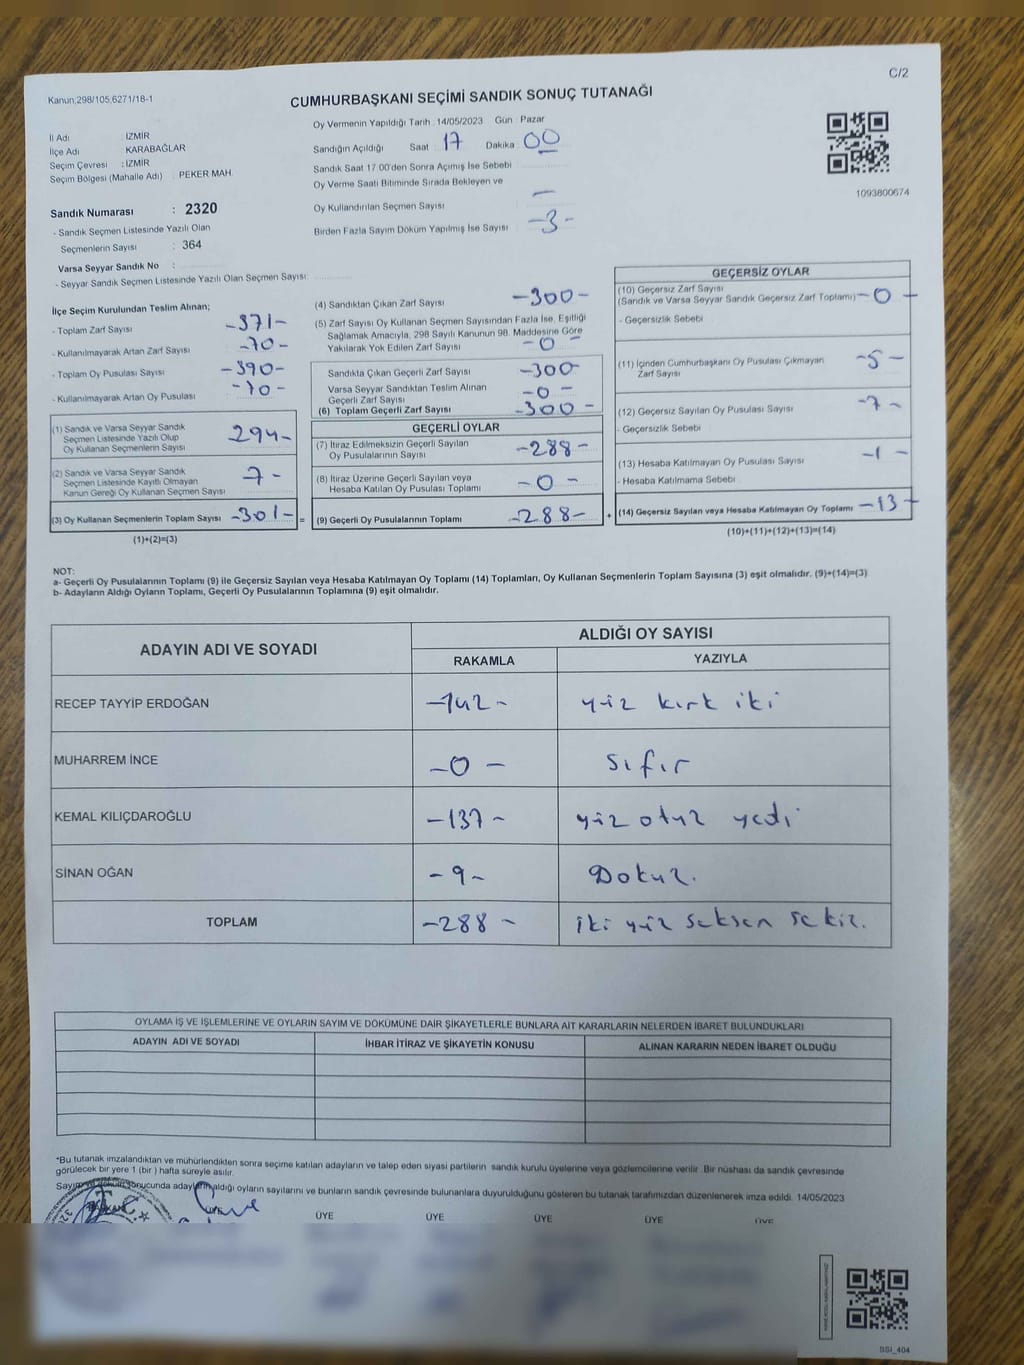 C/2
Kanun.298/105,6271/18-1
CUMHURBAŞKANI SEÇİMİ SANDIK SONUÇ TUTANAĞI
İl Adı : İZMİR
İlçe Adı : KARABAĞLAR
Seçim Çevresi : İZMİR
Seçim Bölgesi (Mahalle Adı) : PEKER MAH.
Sandık Numarası : 2320
- Sandık Seçmen Listesinde Yazılı Olan
Seçmenlerin Sayısı : 364
Varsa Seyyar Sandık No :
- Seyyar Sandık Seçmen Listesinde Yazılı Olan Seçmen Sayısı:
Oy Vermenin Yapıldığı Tarih : 14/05/2023 Gün Pazar
Sandığın Açıldığı Saat 17 Dakika 00
Sandık Saat 17.00'den Sonra Açımış İse Sebebi
Oy Verme Saati Bitiminde Sırada Bekleyen ve
Oy Kullandırılan Seçmen Sayısı —
Birden Fazla Sayım Döküm Yapılmış İse Sayısı -3-
1093800674
İlçe Seçim Kurulundan Teslim Alınan;
- Toplam Zarf Sayısı -371-
- Kullanılmayarak Artan Zarf Sayısı -70-
- Toplam Oy Pusulası Sayısı -390-
- Kullanılmayarak Artan Oy Pusulası -70-
(1) Sandık ve Varsa Seyyar Sandık
Seçmen Listesinde Yazılı Olup
Oy Kullanan Seçmenlerin Sayısı 294-
(2) Sandık ve Varsa Seyyar Sandık
Seçmen Listesinde Kayıtlı Olmayan
Kanun Gereği Oy Kullanan Seçmen Sayısı 7-
(3) Oy Kullanan Seçmenlerin Toplam Sayısı -301- =
(1)+(2)=(3)
(4) Sandıktan Çıkan Zarf Sayısı -300-
(5) Zarf Sayısı Oy Kullanan Seçmen Sayısından Fazla İse, Eşitliği
Sağlamak Amacıyla, 298 Sayılı Kanunun 98. Maddesine Göre
Yakılarak Yok Edilen Zarf Sayısı -0-
Sandıkta Çıkan Geçerli Zarf Sayısı -300-
Varsa Seyyar Sandıktan Teslim Alınan
Geçerli Zarf Sayısı -0-
(6) Toplam Geçerli Zarf Sayısı -300-
GEÇERLİ OYLAR
(7) İtiraz Edilmeksizin Geçerli Sayılan
Oy Pusulalarının Sayısı -288-
(8) İtiraz Üzerine Geçerli Sayılan veya
Hesaba Katılan Oy Pusulası Toplamı -0-
(9) Geçerli Oy Pusulalarının Toplamı -288- +
GEÇERSİZ OYLAR
(10) Geçersiz Zarf Sayısı
(Sandık ve Varsa Seyyar Sandık Geçersiz Zarf Toplamı) -0-
- Geçersizlik Sebebi
(11) İçinden Cumhurbaşkanı Oy Pusulası Çıkmayan
Zarf Sayısı -5-
(12) Geçersiz Sayılan Oy Pusulası Sayısı -7-
- Geçersizlik Sebebi
(13) Hesaba Katılmayan Oy Pusulası Sayısı -1-
- Hesaba Katılmama Sebebi
(14) Geçersiz Sayılan veya Hesaba Katılmayan Oy Toplamı -13-
(10)+(11)+(12)+(13)=(14)
NOT:
a- Geçerli Oy Pusulalarının Toplamı (9) ile Geçersiz Sayılan veya Hesaba Katılmayan Oy Toplamı (14) Toplamları, Oy Kullanan Seçmenlerin Toplam Sayısına (3) eşit olmalıdır. (9)+(14)=(3)
b- Adayların Aldığı Oyların Toplamı, Geçerli Oy Pusulalarının Toplamına (9) eşit olmalıdır.
ADAYIN ADI VE SOYADI ALDIĞI OY SAYISI
RAKAMLA YAZIYLA
RECEP TAYYİP ERDOĞAN -142- yüz kırk iki
MUHARREM İNCE -0- sıfır
KEMAL KILIÇDAROĞLU -137- yüz otuz yedi
SİNAN OĞAN -9- Dokuz.
TOPLAM -288- iki yüz seksen sekiz.
OYLAMA İŞ VE İŞLEMLERİNE VE OYLARIN SAYIM VE DÖKÜMÜNE DAİR ŞİKAYETLERLE BUNLARA AİT KARARLARIN NELERDEN İBARET BULUNDUKLARI
ADAYIN ADI VE SOYADI İHBAR İTİRAZ VE ŞİKAYETİN KONUSU ALINAN KARARIN NEDEN İBARET OLDUĞU
*Bu tutanak imzalandıktan ve mühürlendikten sonra seçime katılan adayların ve talep eden siyasi partilerin sandık kurulu üyelerine veya gözlemcilerine verilir. Bir nüshası da sandık çevresinde
görülecek bir yere 1 (bir) hafta süreyle asılır.
Sayım ve döküm sonucunda adayların aldığı oyların sayılarını ve bunların sandık çevresinde bulunanlara duyurulduğunu gösteren bu tutanak tarafımızdan düzenlenerek imza edildi. 14/05/2023
ÜYE ÜYE ÜYE ÜYE ÜYE ÜYE
SSI_404